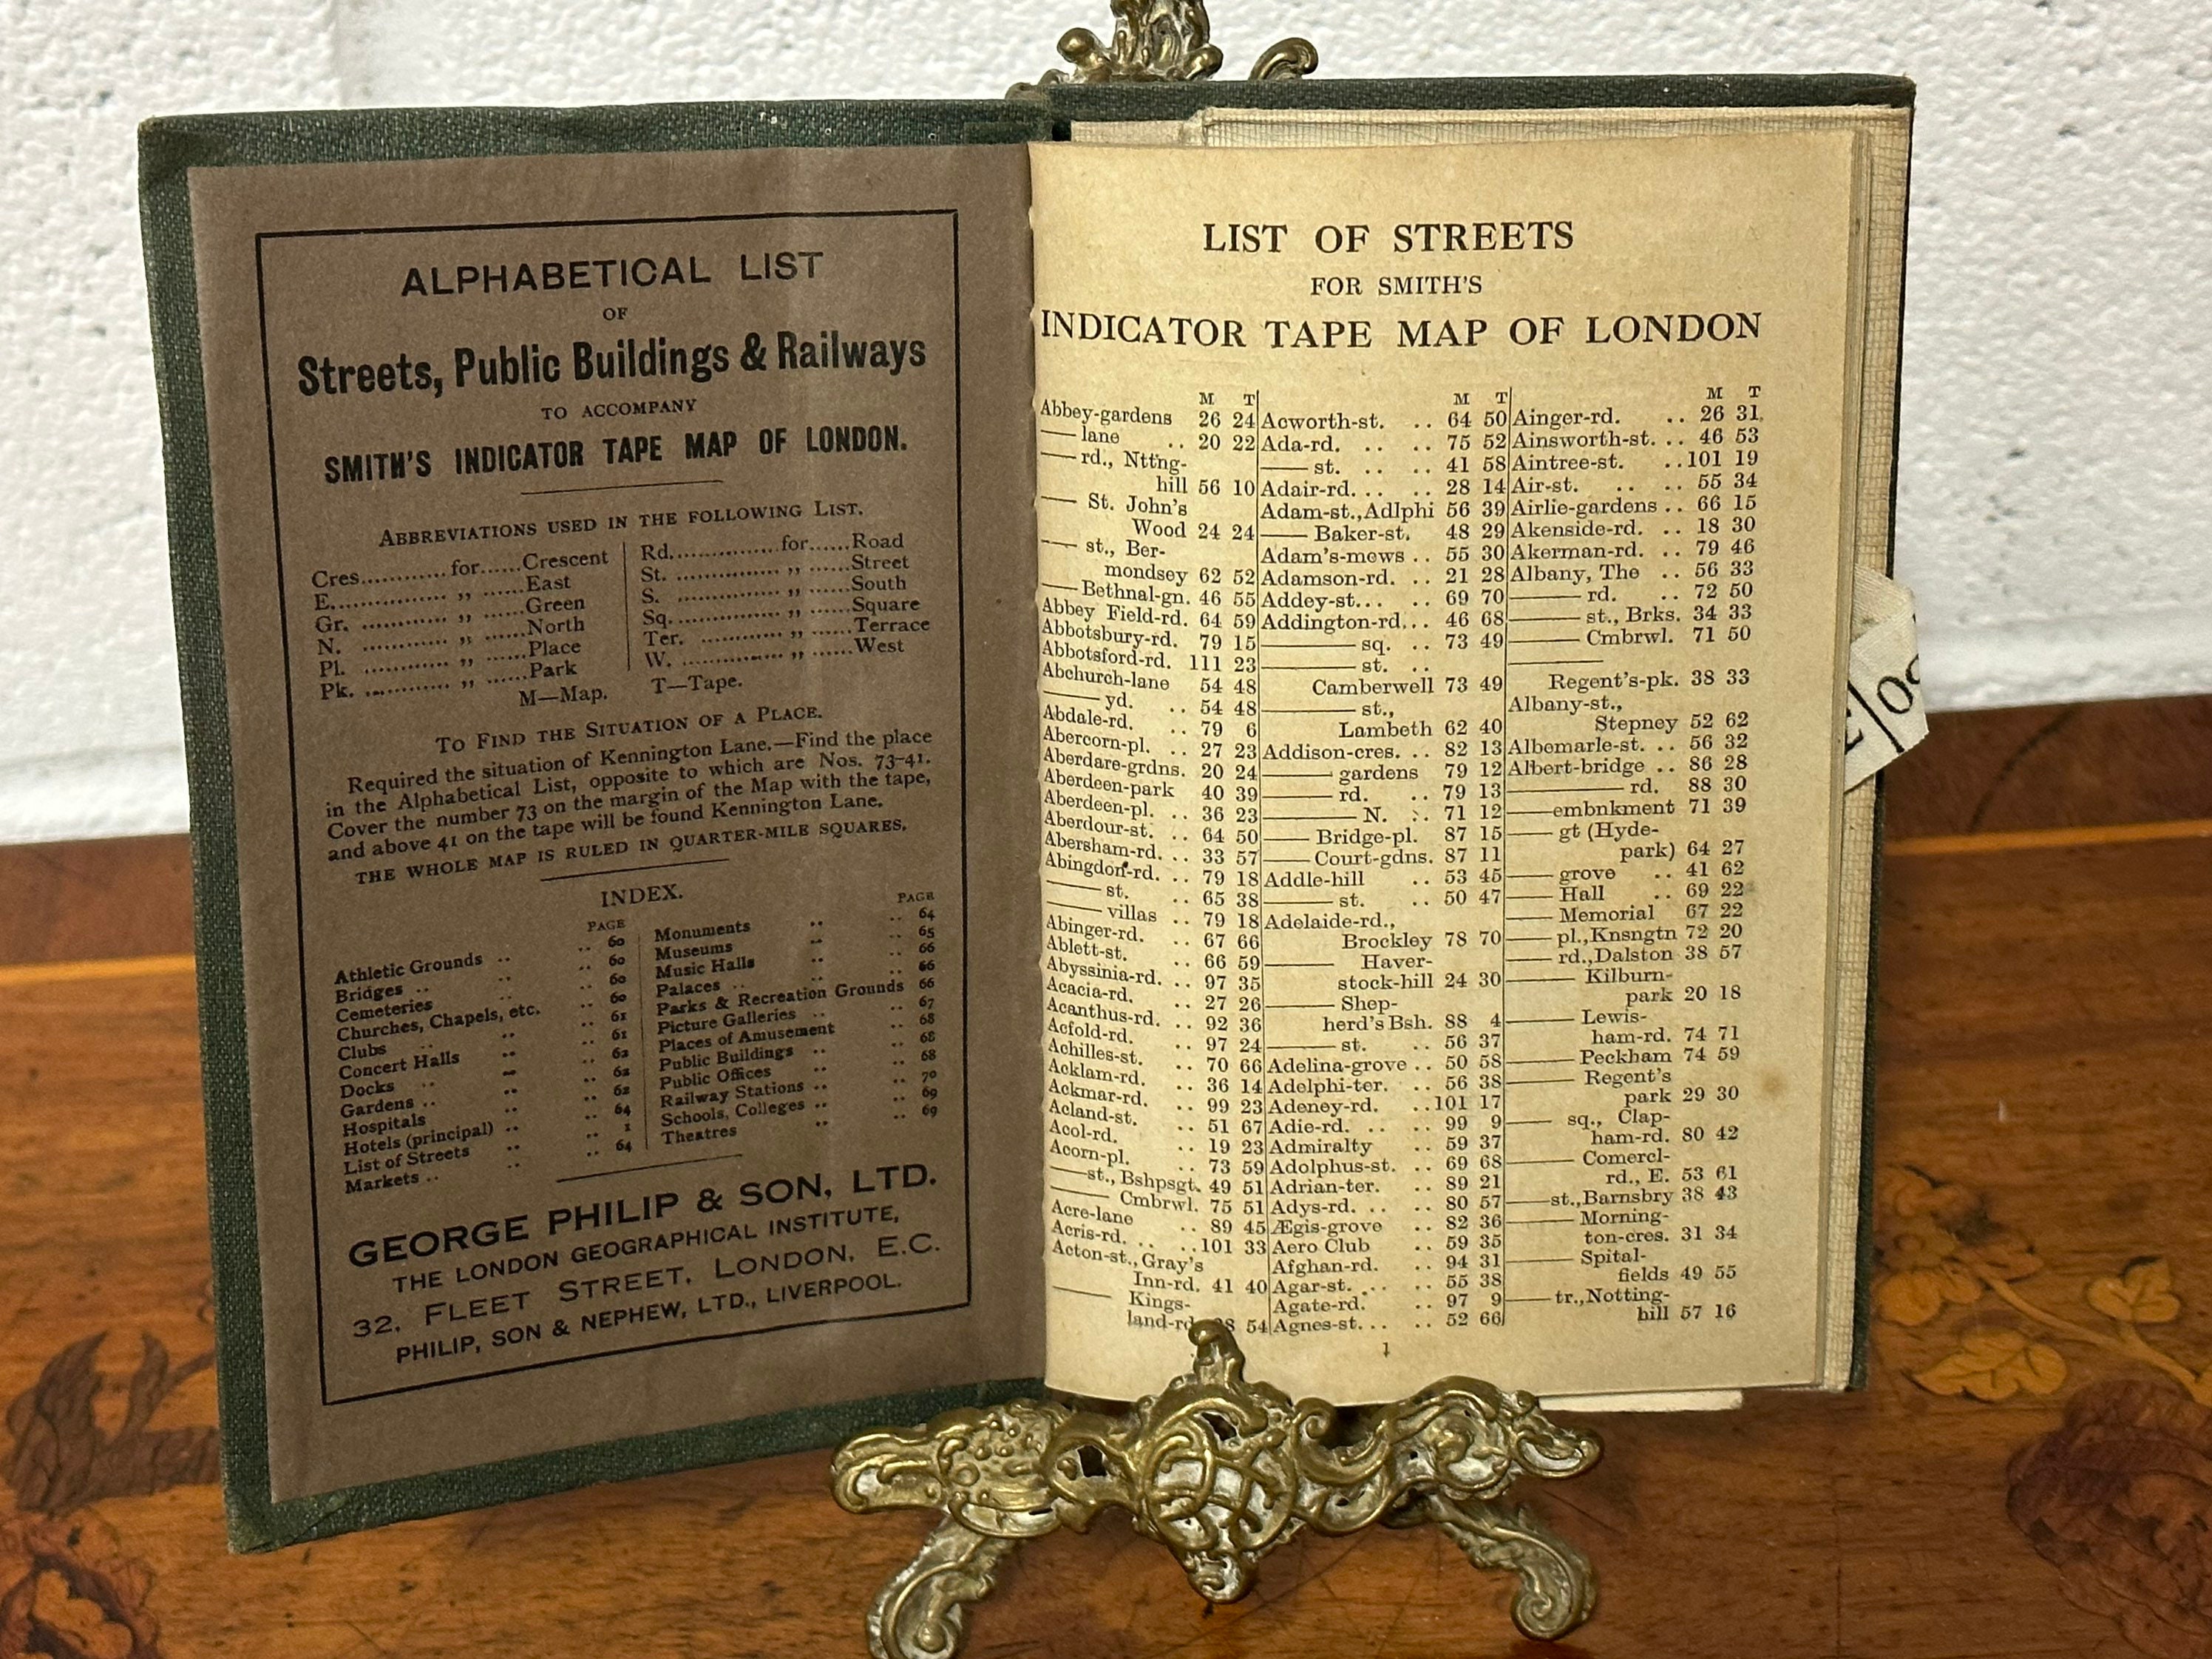 ALPHABETICAL LIST
OF
Streets, Public Buildings & Railways
TO ACCOMPANY
SMITH'S INDICATOR TAPE MAP OF LONDON.
ABBREVIATIONS USED IN THE FOLLOWING LIST.
Cres............for......Crescent
E................ ,, ......East
Gr. ............ ,, ......Green
N. ............ ,, ......North
Pl. ............ ,, ......Place
Pk. ............ ,, ......Park
Rd................for......Road
St. ............... ,, ......Street
S. ............... ,, ......South
Sq................ ,, ......Square
Ter. ............ ,, ......Terrace
W. ............... ,, ......West
M—Map. T—Tape.
TO FIND THE SITUATION OF A PLACE.
Required the situation of Kennington Lane.—Find the place
in the Alphabetical List, opposite to which are Nos. 73-41.
Cover the number 73 on the margin of the Map with the tape,
and above 41 on the tape will be found Kennington Lane.
THE WHOLE MAP IS RULED IN QUARTER-MILE SQUARES.
INDEX.
PAGE
Athletic Grounds .. .. 60
Bridges .. .. 60
Cemeteries .. 60
Churches, Chapels, etc. .. 60
Clubs .. .. 61
Concert Halls .. .. 61
Docks .. .. 62
Gardens .. .. 62
Hospitals .. .. 62
Hotels (principal) .. .. 64
List of Streets .. .. 1
Markets .. .. 64
PAGE
Monuments .. .. 64
Museums .. .. 65
Music Halls .. .. 66
Palaces .. .. 66
Parks & Recreation Grounds 66
Picture Galleries .. .. 67
Places of Amusement .. 68
Public Buildings .. .. 68
Public Offices .. .. 68
Railway Stations .. .. 70
Schools, Colleges .. .. 69
Theatres .. .. 69
GEORGE PHILIP & SON, LTD.
THE LONDON GEOGRAPHICAL INSTITUTE,
32, FLEET STREET, LONDON, E.C.
PHILIP, SON & NEPHEW, LTD., LIVERPOOL.
LIST OF STREETS
FOR SMITH'S
INDICATOR TAPE MAP OF LONDON
M T
Abbey-gardens 26 24
—— lane .. 20 22
—— rd., Nttng-
hill 56 10
—— St. John's
Wood 24 24
—— st., Ber-
mondsey 62 52
——Bethnal-gn. 46 55
Abbey Field-rd. 64 59
Abbotsbury-rd. 79 15
Abbotsford-rd. 111 23
Abchurch-lane 54 48
—— yd. .. 54 48
Abdale-rd. 79 6
Abercorn-pl. .. 27 23
Aberdare-grdns. 20 24
Aberdeen-park 40 39
Aberdeen-pl. .. 36 23
Aberdour-st. .. 64 50
Abersham-rd. .. 33 57
Abingdon-rd. .. 79 18
—— st. .. 65 38
—— villas .. 79 18
Abinger-rd. .. 67 66
Ablett-st. .. 66 59
Abyssinia-rd. .. 97 35
Acacia-rd. .. 27 26
Acanthus-rd. .. 92 36
Acfold-rd. .. 97 24
Achilles-st. .. 70 66
Acklam-rd. .. 36 14
Ackmar-rd. .. 99 23
Acland-st. .. 51 67
Acol-rd. .. 19 23
Acorn-pl. .. 73 59
——st., Bshpsgt. 49 51
—— Cmbrwl. 75 51
Acre-lane .. 89 45
Acris-rd. .. ..101 33
Acton-st., Gray's
Inn-rd. 41 40
—— Kings-
land-rd. 54
M T
Acworth-st. .. 64 50
Ada-rd. .. .. 75 52
—— st. .. .. 41 58
Adair-rd. .. .. 28 14
Adam-st.,Adlphi 56 39
—— Baker-st. 48 29
Adam's-mews .. 55 30
Adamson-rd. .. 21 28
Addey-st... .. 69 70
Addington-rd... 46 68
—— sq. .. 73 49
—— st. ..
Camberwell 73 49
—— st.,
Lambeth 62 40
Addison-cres. .. 82 13
—— gardens 79 12
—— rd. .. 79 13
—— N. .. 71 12
—— Bridge-pl. 87 15
—— Court-gdns. 87 11
Addle-hill .. 53 45
—— st. .. 50 47
Adelaide-rd.,
Brockley 78 70
—— Haver-
stock-hill 24 30
—— Shep-
herd's Bsh. 88 4
—— st. .. 56 37
Adelina-grove .. 50 58
Adelphi-ter. .. 56 38
Adeney-rd. ..101 17
Adie-rd. .. .. 99 9
Admiralty .. 59 37
Adolphus-st. .. 69 68
Adrian-ter. .. 89 21
Adys-rd. .. .. 80 57
Ægis-grove .. 82 36
Aero Club .. 59 35
Afghan-rd. .. 94 31
Agar-st. .. .. 55 38
Agate-rd. .. 97 9
Agnes-st... .. 52 66
M T
Ainger-rd. .. 26 31
Ainsworth-st. .. 46 53
Aintree-st. ..101 19
Air-st. .. .. 55 34
Airlie-gardens .. 66 15
Akenside-rd. .. 18 30
Akerman-rd. .. 79 46
Albany, The .. 56 33
—— rd. .. 72 50
—— st., Brks. 34 33
—— Cmbrwl. 71 50
——
Regent's-pk. 38 33
Albany-st.,
Stepney 52 62
Albemarle-st. .. 56 32
Albert-bridge .. 86 28
—— rd. 88 30
——embnkment 71 39
—— gt (Hyde-
park) 64 27
—— grove .. 41 62
—— Hall .. 69 22
—— Memorial 67 22
—— pl.,Knsngtn 72 20
—— rd.,Dalston 38 57
—— Kilburn-
park 20 18
—— Lewis-
ham-rd. 74 71
—— Peckham 74 59
—— Regent's
park 29 30
—— sq., Clap-
ham-rd. 80 42
—— Comercl-
rd., E. 53 61
——st.,Barnsbry 38 43
—— Morning-
ton-cres. 31 34
—— Spital-
fields 49 55
——tr.,Notting-
hill 57 16
1